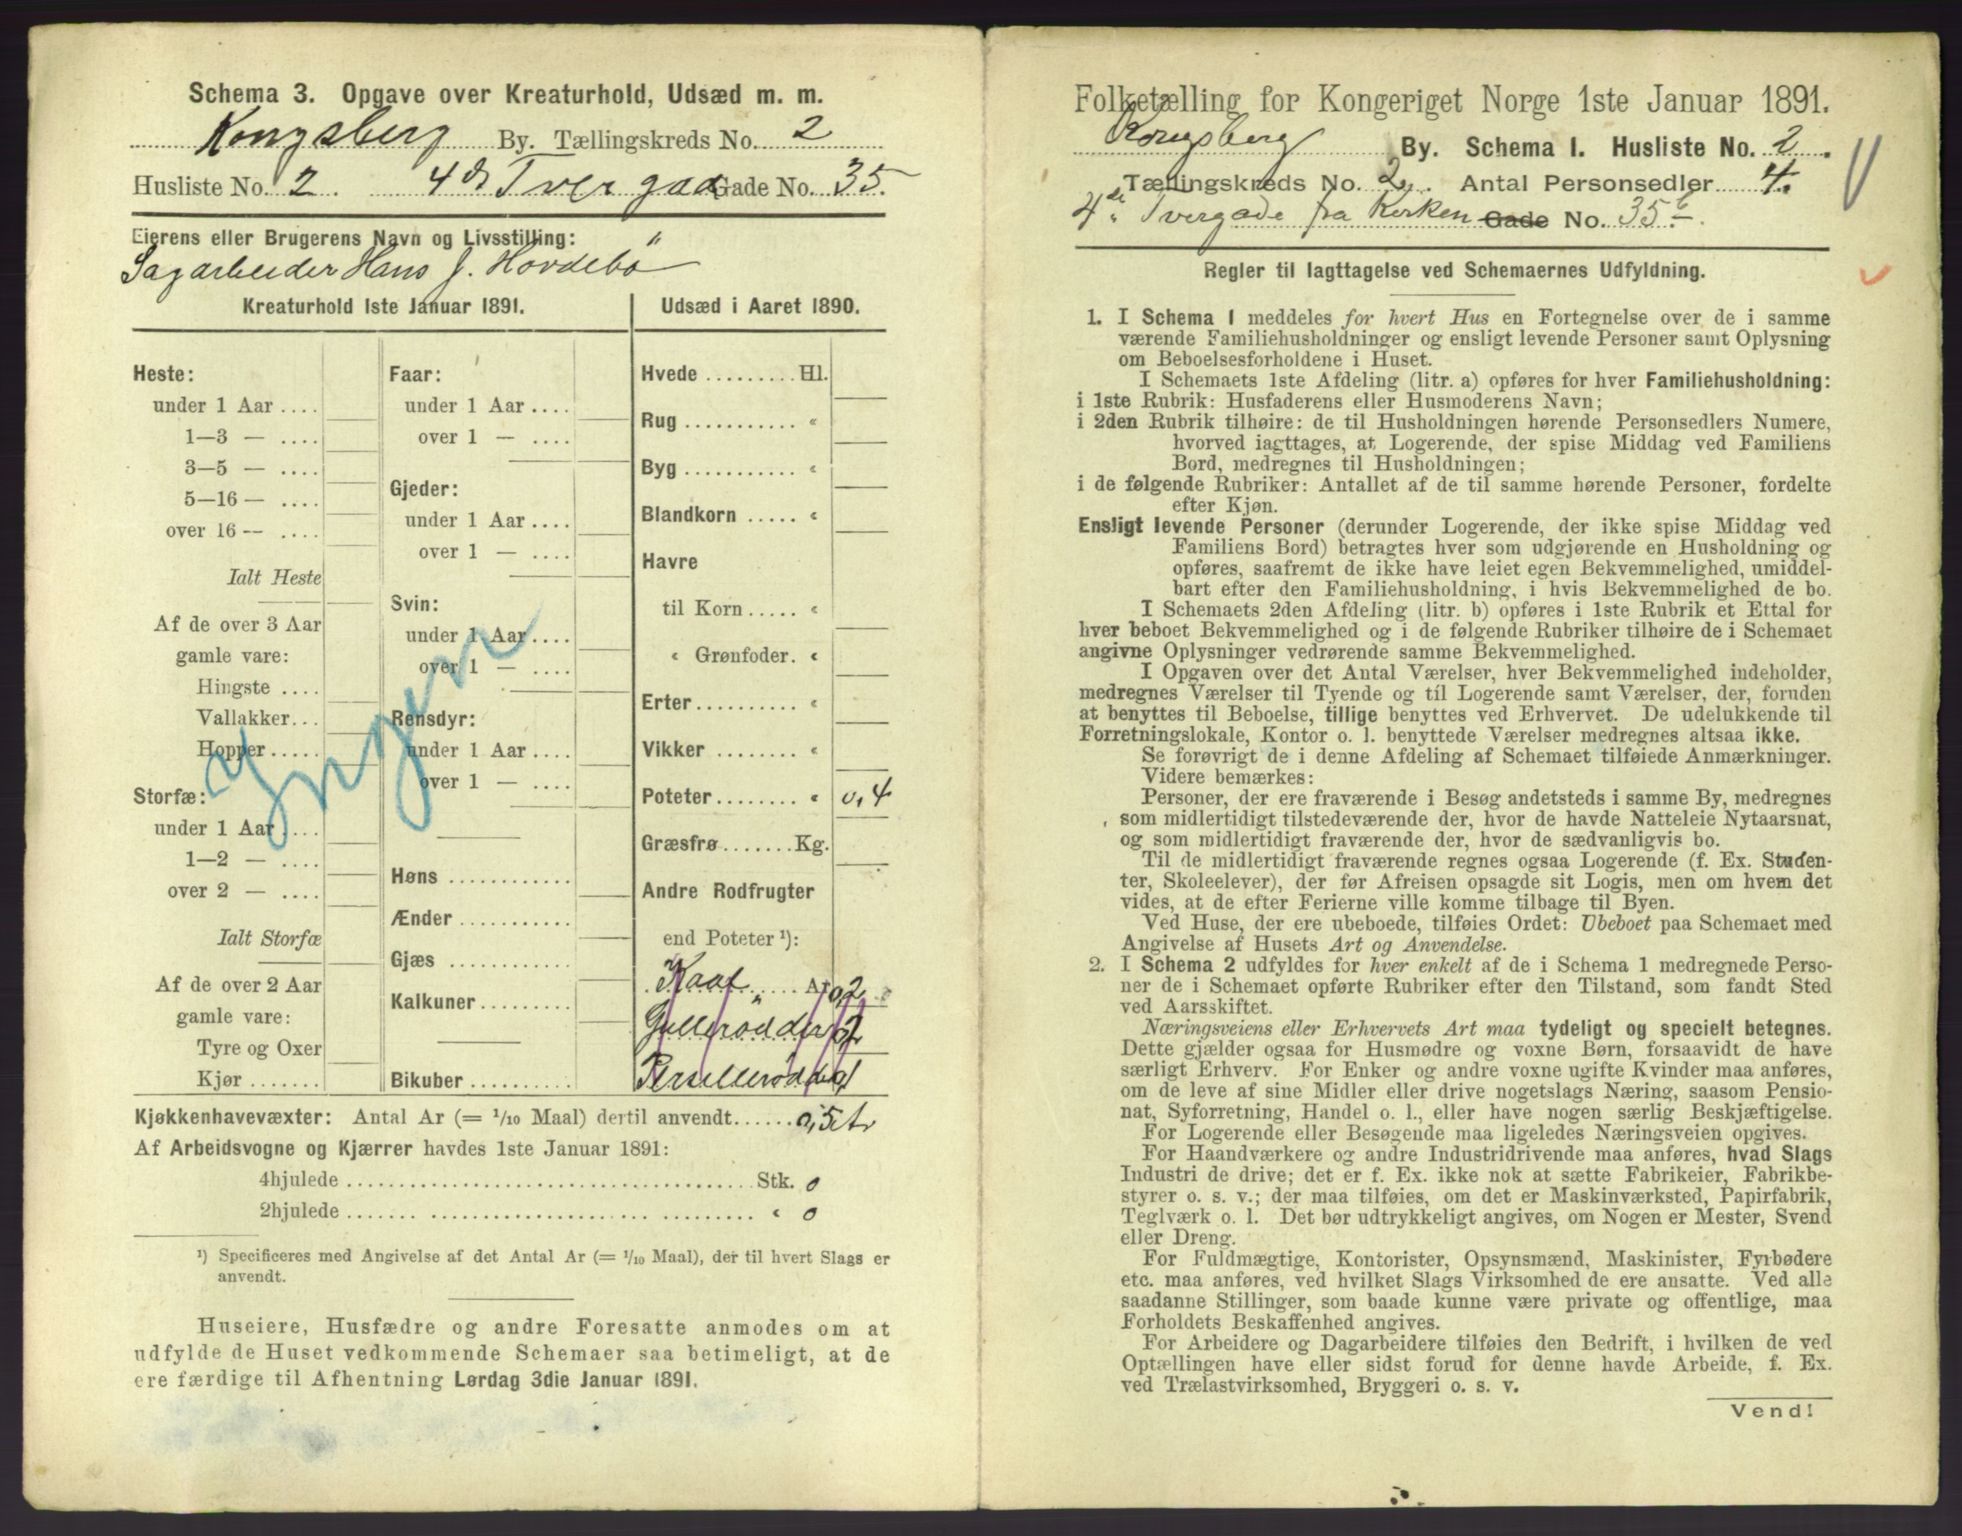 Schema 3. Opgave over Kreaturhold, Udsæd m. m.
Kongsberg By. Tællingskreds No. 2
Husliste No. 2. 4de Tvergade Gade No. 35.
Eierens eller Brugerens Navn og Livsstilling:
Sagarbeider Hans J. Hovdebö
Kreaturhold 1ste Januar 1891.
Heste:
under 1 Aar ....
1—3 — ....
3—5 — ....
5—16 — ....
over 16 — ....
Ialt Heste
Af de over 3 Aar
gamle vare:
Hingste ....
Vallakker...
Hopper .....
Storfæ:
under 1 Aar ....
1—2 — ....
over 2 — ....
Ialt Storfæ
Af de over 2 Aar
gamle vare:
Tyre og Oxer
Kjør .......
Faar:
under 1 Aar ....
over 1 — ....
Gjeder:
under 1 Aar ....
over 1 — ....
Svin:
under 1 Aar ....
over 1 — ....
Rensdyr:
under 1 Aar ....
over 1 — ....
Høns ............
Ænder ...........
Gjæs ............
Kalkuner .........
Bikuber ..........
Ingen
Udsæd i Aaret 1890.
Hvede ......... Hl.
Rug ........... «
Byg ........... «
Blandkorn ..... «
Havre
til Korn ..... «
« Grønfoder. «
Erter .......... «
Vikker ......... «
Poteter ........ « 0,4
Græsfrø ....... Kg.
Andre Rodfrugter
end Poteter ¹):
Kaal ...... Ar 0,2
Gullerødder 0,2
Persillerødder 0,1
Kjøkkenhavevæxter: Antal Ar (= 1/10 Maal) dertil anvendt...... 0,5 Ar
Af Arbeidsvogne og Kjærrer havdes 1ste Januar 1891:
4hjulede .......... Stk. 0
2hjulede .......... « 0
¹) Specificeres med Angivelse af det Antal Ar (= 1/10 Maal), der til hvert Slags er
anvendt.
Huseiere, Husfædre og andre Foresatte anmodes om at
udfylde de Huset vedkommende Schemaer saa betimeligt, at de
ere færdige til Afhentning Lørdag 3die Januar 1891.
Folketælling for Kongeriget Norge 1ste Januar 1891.
Kongsberg By. Schema I. Husliste No. 2.
Tællingskreds No. 2. Antal Personsedler 4.
4de Tvergade fra Kirken Gade No. 35b.
Regler til Iagttagelse ved Schemaernes Udfyldning.
1. I Schema 1 meddeles for hvert Hus en Fortegnelse over de i samme
værende Familiehusholdninger og ensligt levende Personer samt Oplysning
om Beboelsesforholdene i Huset.
I Schemaets 1ste Afdeling (litr. a) opføres for hver Familiehusholdning:
i 1ste Rubrik: Husfaderens eller Husmoderens Navn;
i 2den Rubrik tilhøire: de til Husholdningen hørende Personsedlers Numere,
hvorved iagttages, at Logerende, der spise Middag ved Familiens
Bord, medregnes til Husholdningen;
i de følgende Rubriker: Antallet af de til samme hørende Personer, fordelte
efter Kjøn.
Ensligt levende Personer (derunder Logerende, der ikke spise Middag ved
Familiens Bord) betragtes hver som udgjørende en Husholdning og
opføres, saafremt de ikke have leiet egen Bekvemmelighed, umiddel-
bart efter den Familiehusholdning, i hvis Bekvemmelighed de bo.
I Schemaets 2den Afdeling (litr. b) opføres i 1ste Rubrik et Ettal for
hver beboet Bekvemmelighed og i de følgende Rubriker tilhøire de i Schemaet
angivne Oplysninger vedrørende samme Bekvemmelighed.
I Opgaven over det Antal Værelser, hver Bekvemmelighed indeholder,
medregnes Værelser til Tyende og til Logerende samt Værelser, der, foruden
at benyttes til Beboelse, tillige benyttes ved Erhvervet. De udelukkende til
Forretningslokale, Kontor o. l. benyttede Værelser medregnes altsaa ikke.
Se forøvrigt de i denne Afdeling af Schemaet tilføiede Anmærkninger.
Videre bemærkes:
Personer, der ere fraværende i Besøg andetsteds i samme By, medregnes
som midlertidigt tilstedeværende der, hvor de havde Natteleie Nytaarsnat,
og som midlertidigt fraværende der, hvor de sædvanligvis bo.
Til de midlertidigt fraværende regnes ogsaa Logerende (f. Ex. Studen-
ter, Skoleelever), der før Afreisen opsagde sit Logis, men om hvem det
vides, at de efter Ferierne ville komme tilbage til Byen.
Ved Huse, der ere ubeboede, tilføies Ordet: Ubeboet paa Schemaet med
Angivelse af Husets Art og Anvendelse.
2. I Schema 2 udfyldes for hver enkelt af de i Schema 1 medregnede Perso-
ner de i Schemaet opførte Rubriker efter den Tilstand, som fandt Sted
ved Aarsskiftet.
Næringsveiens eller Erhvervets Art maa tydeligt og specielt betegnes.
Dette gjælder ogsaa for Husmødre og voxne Børn, forsaavidt de have
særligt Erhverv. For Enker og andre voxne ugifte Kvinder maa anføres,
om de leve af sine Midler eller drive nogetslags Næring, saasom Pensio-
nat, Syforretning, Handel o. l., eller have nogen særlig Beskjæftigelse.
For Logerende eller Besøgende maa ligeledes Næringsveien opgives.
For Haandværkere og andre Industridrivende maa anføres, hvad Slags
Industri de drive; det er f. Ex. ikke nok at sætte Fabrikeier, Fabrikbe-
styrer o. s. v.; der maa tilføies, om det er Maskinværksted, Papirfabrik,
Teglværk o. l. Det bør udtrykkeligt angives, om Nogen er Mester, Svend
eller Dreng.
For Fuldmægtige, Kontorister, Opsynsmænd, Maskinister, Fyrbødere
etc. maa anføres, ved hvilket Slags Virksomhed de ere ansatte. Ved alle
saadanne Stillinger, som baade kunne være private og offentlige, maa
Forholdets Beskaffenhed angives.
For Arbeidere og Dagarbeidere tilføies den Bedrift, i hvilken de ved
Optællingen have eller sidst forud for denne havde Arbeide, f. Ex.
ved Trælastvirksomhed, Bryggeri o. s. v.
Vend!